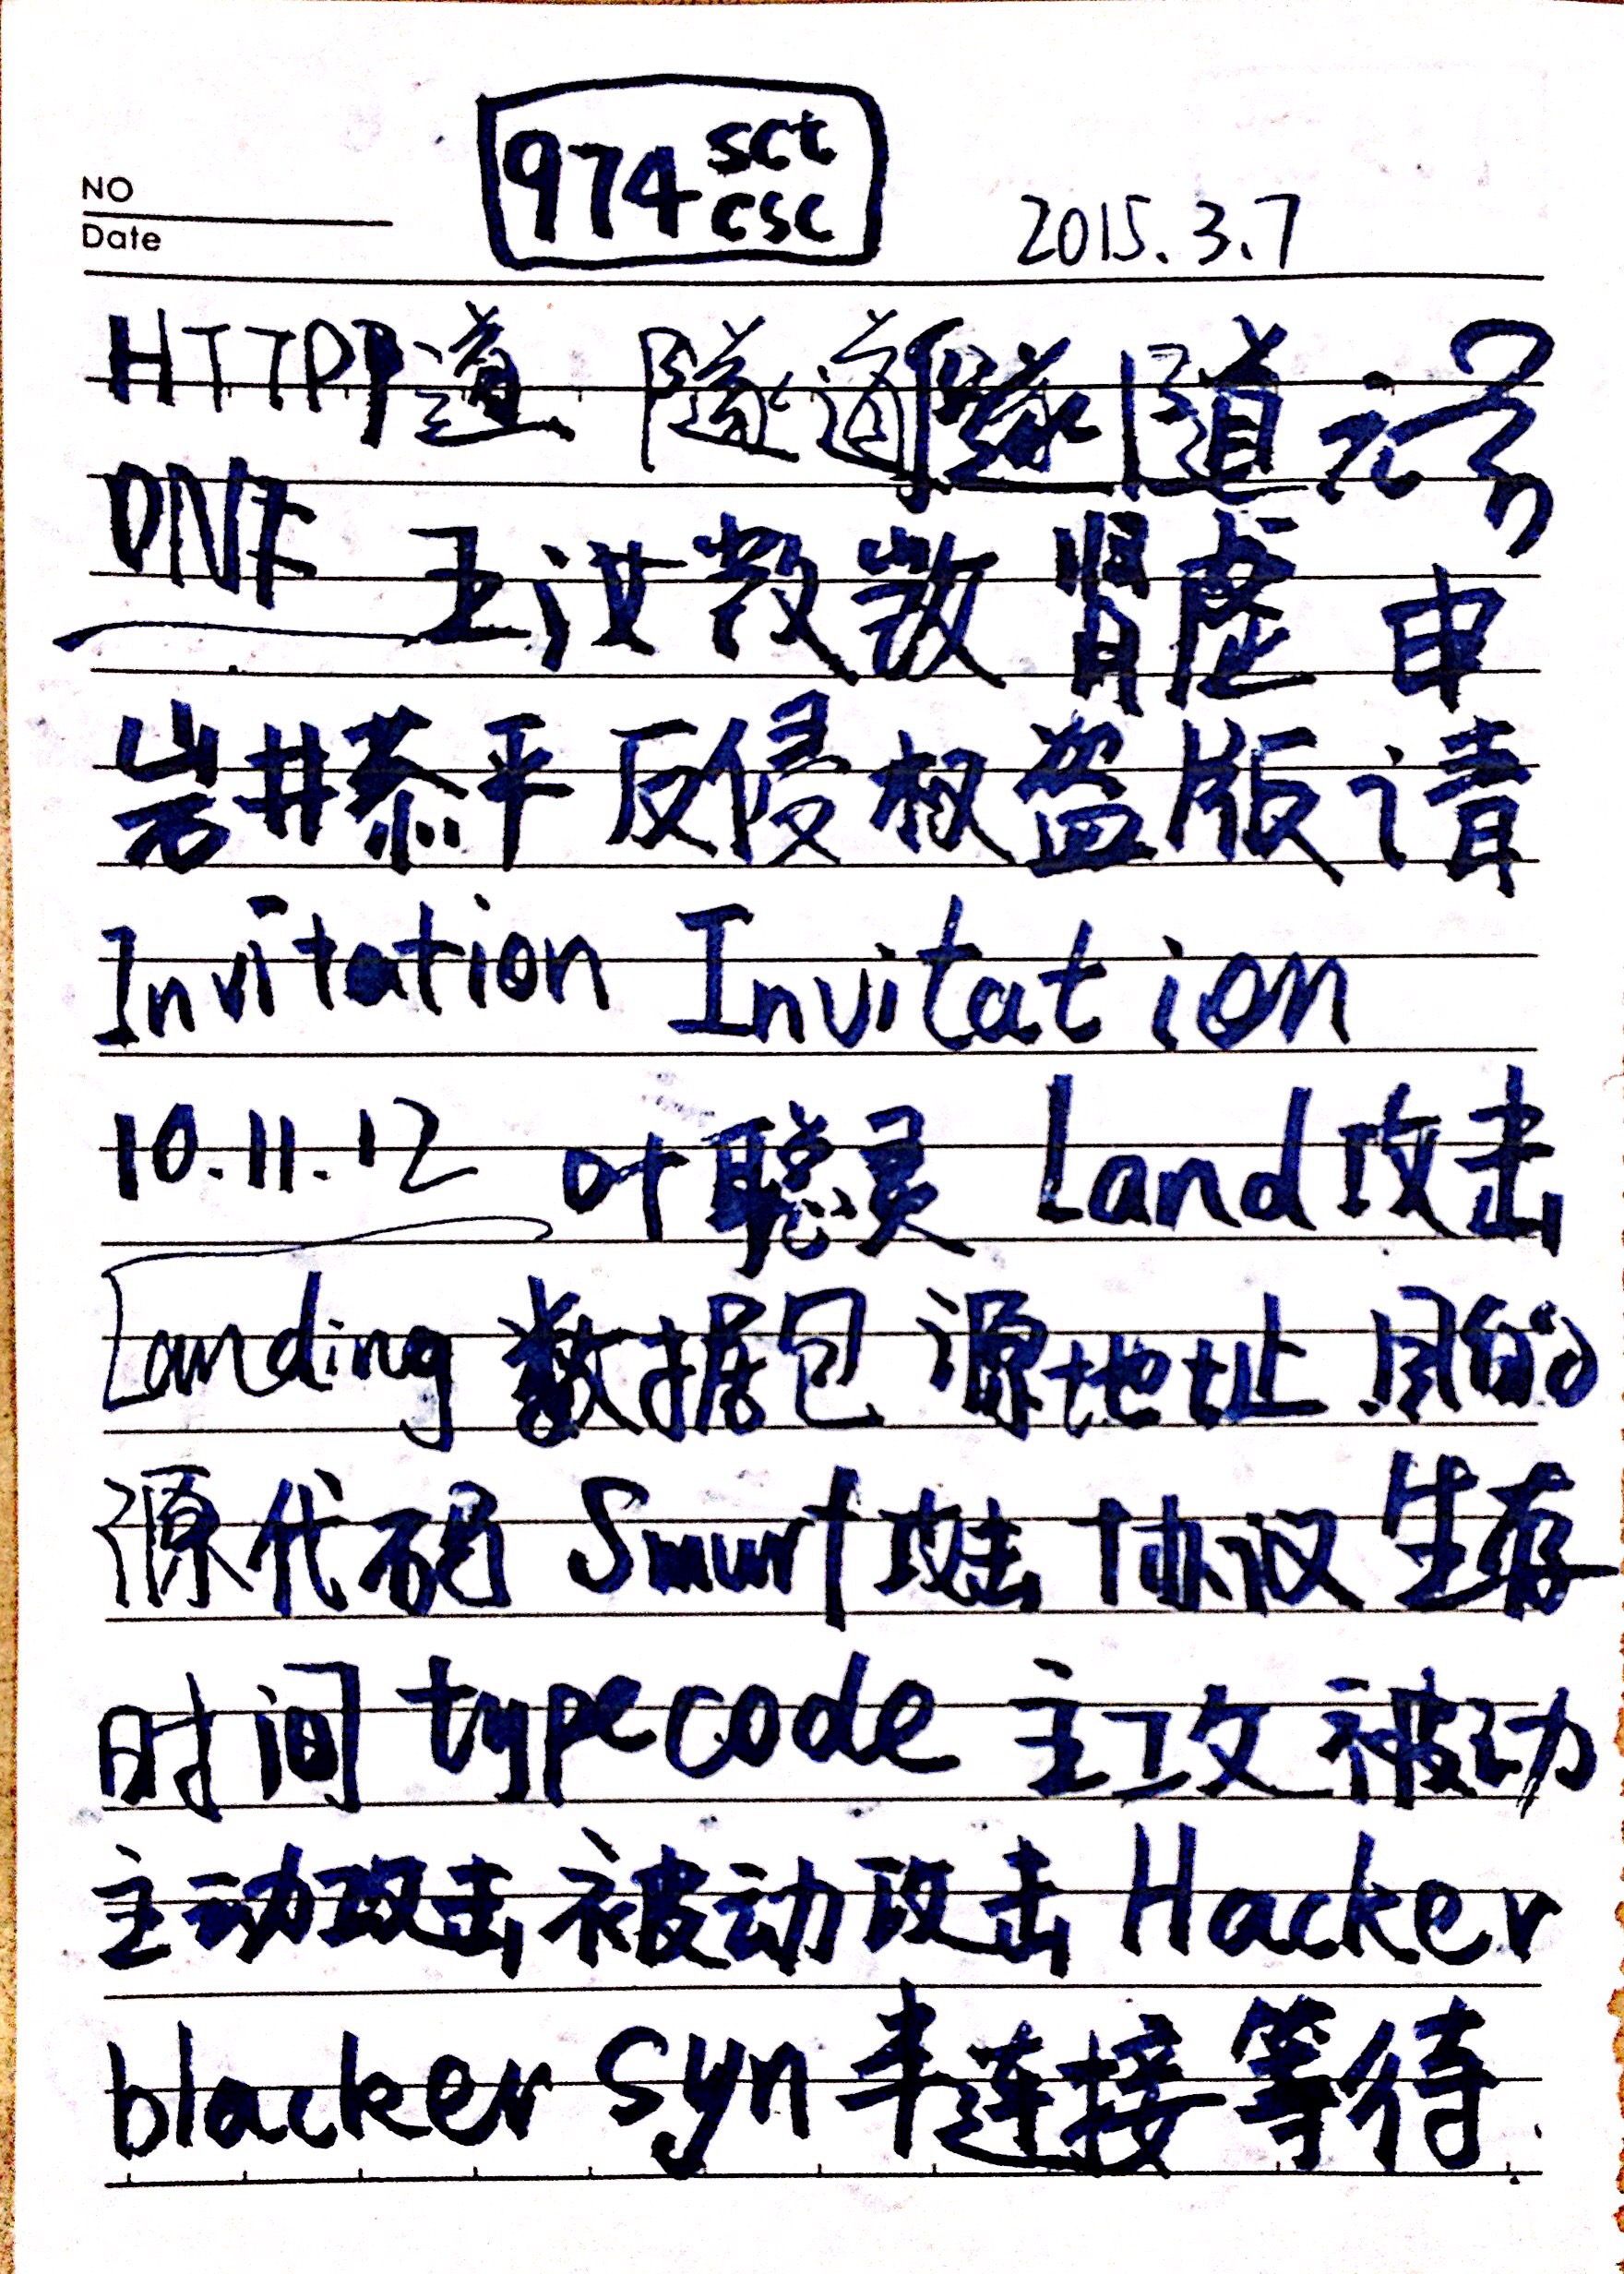 974 SCC CSC
NO
Date
2015.3.7
HTTP 道 隧道 隧道
DNF 王汶数数 肾虚 申
岩井恭平反侵权盗版请
Invitation Invitation
10.11.12 叶聪灵 Land攻击
Landing 数据包 源地址
源代码 Smurf攻击 协议 生存
时间 typecode 主攻 被动
主动攻击被动攻击 Hacker
blacker syn 半连接等待